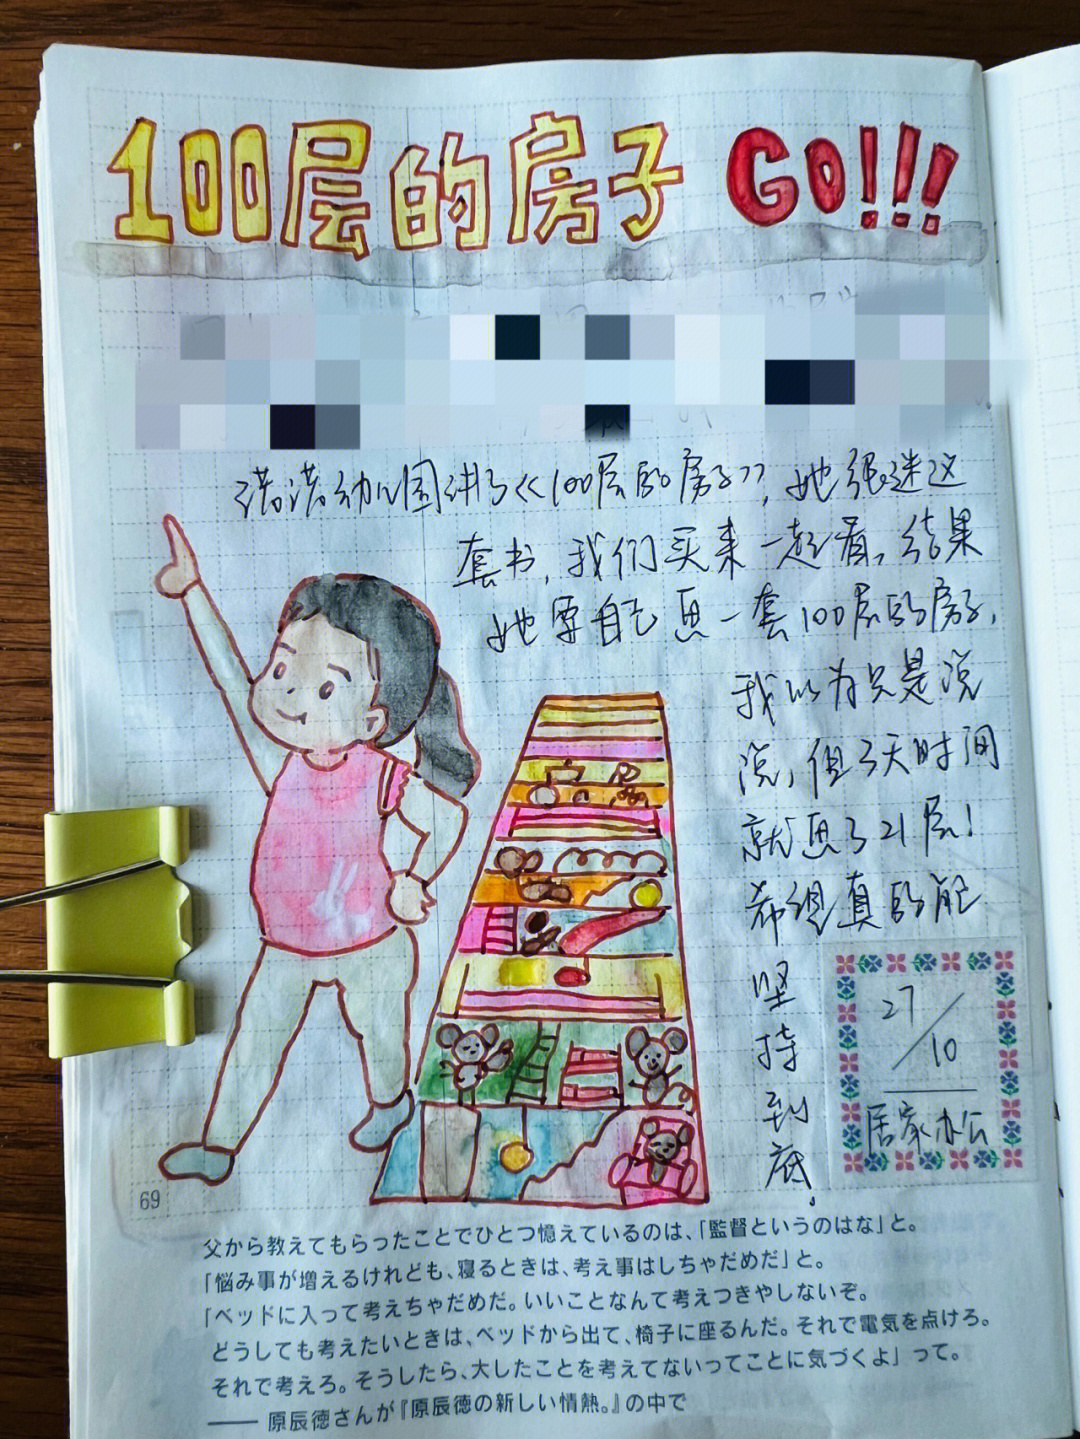 100层的房子 GO!!!
诺诺幼儿园讲了《100层的房子》,她很迷这
套书,我们买来一起看,结果
她要自己画一套100层的房子,
我以为只是说
说,但3天时间
就画了21层!
希望真的能
坚
持
到
底。
27/10
居家办公
69
父から教えてもらったことでひとつ憶えているのは、「監督というのはな」と。
「悩み事が増えるけれども、寝るときは、考え事はしちゃだめだ」と。
「ベッドに入って考えちゃだめだ。いいことなんて考えつきやしないぞ。
どうしても考えたいときは、ベッドから出て、椅子に座るんだ。それで電気を点けろ。
それで考えろ。そうしたら、大したことを考えてないってことに気づくよ」って。
—— 原辰徳さんが『原辰徳の新しい情熱。』の中で